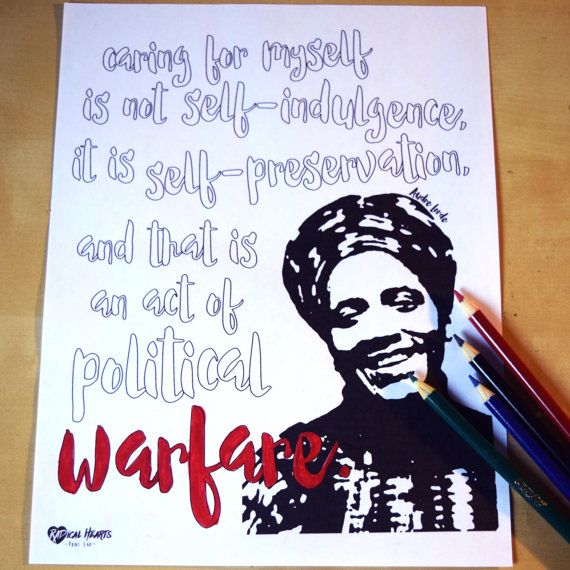 caring for myself
is not self-indulgence,
it is self-preservation,
Audre Lorde
and that is
an act of
political
warfare.
RADICAL HEARTS
- PRINT LAB -